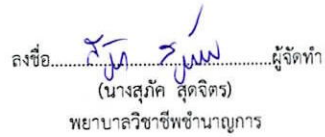 ลงชื่อ..........ผู้จัดทำ
(นางสุภัค สุดจิตร)
พยาบาลวิชาชีพชำนาญการ